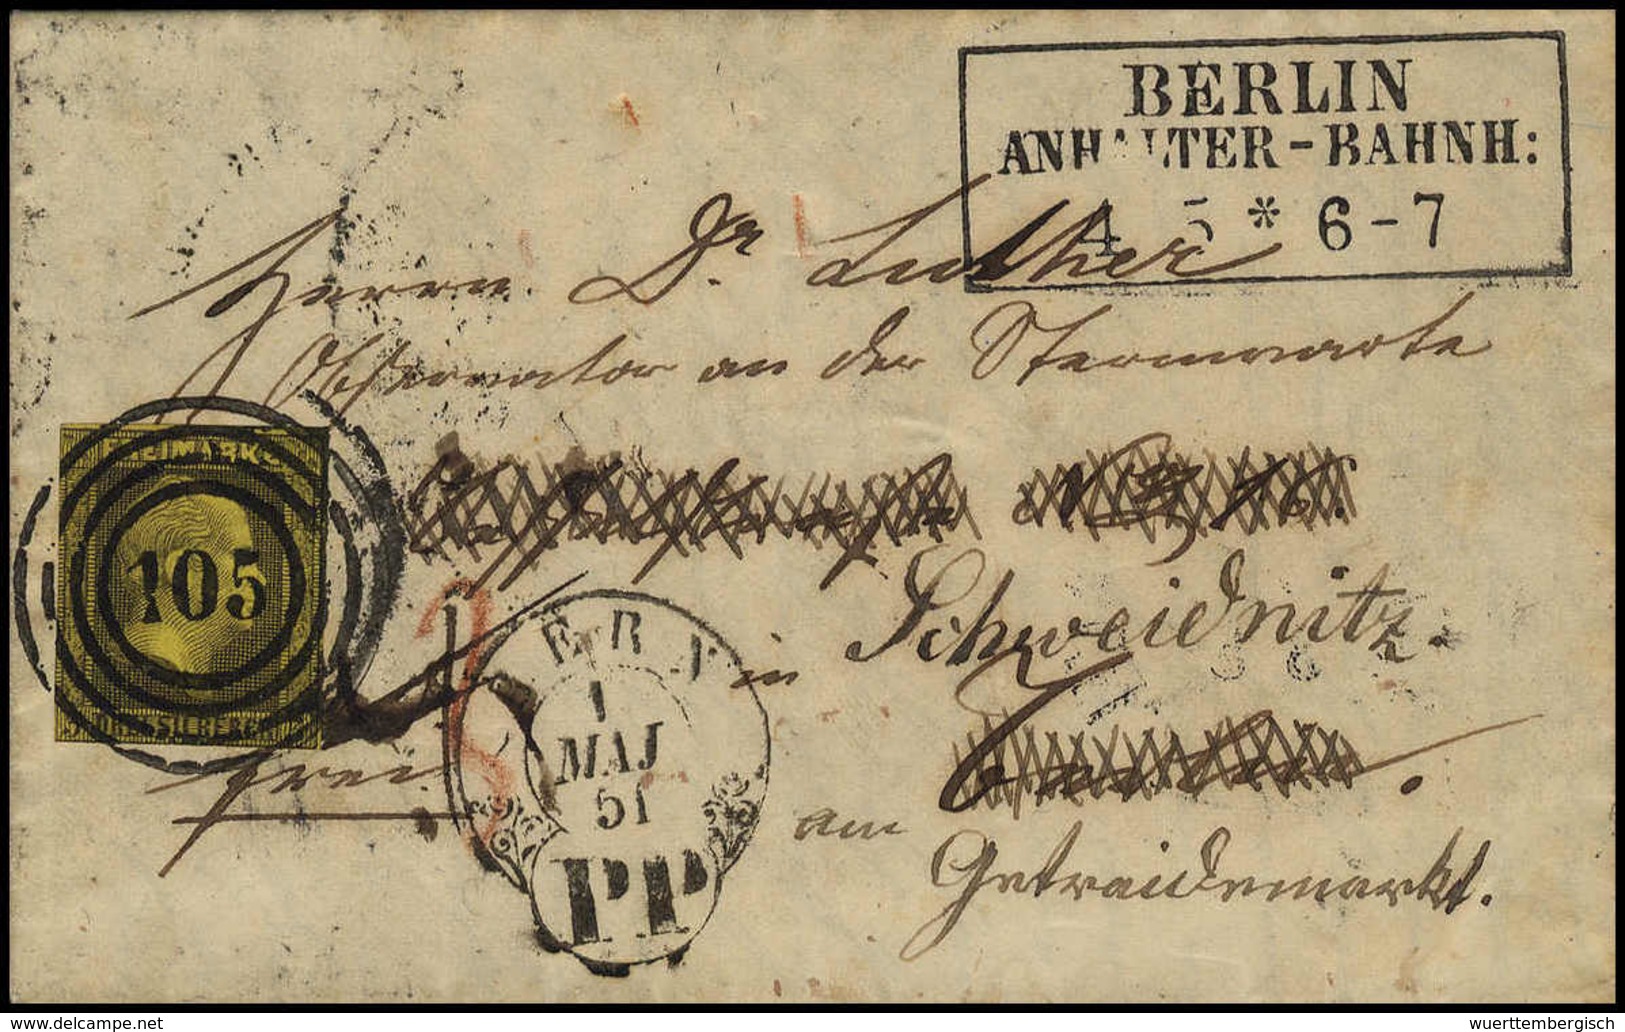 BERLIN
ANHALTER-BAHNH:
4 5 * 6-7
Herrn Dr Luther
Observator an der Sternwarte
FREIMARKE
105
SILBERGR
in Schweidnitz.
BERN
1
MAJ
51
PP
frei
am
Getraidemarkt.
delcampe.net
wuerttembergisch